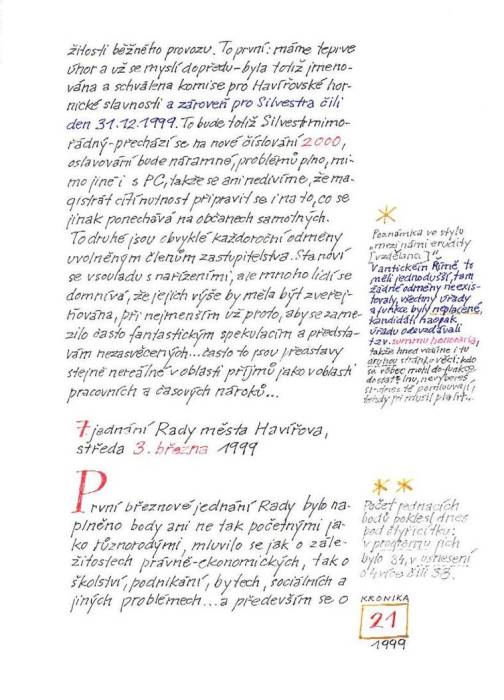 žitosti běžného provozu. To první: máme teprve
únor a už se myslí dopředu – byla totiž jmeno-
vána a schválena komise pro Havířovské hor-
nické slavnosti a zároveň pro Silvestra čili
den 31.12.1999. To bude totiž Silvestr mimo-
řádný – přechází se na nové číslování 2000,
oslavování bude náramné, problémů plno, mi-
mo jiné i s PC, takže se ani nedivíme, že ma-
gistrát cítí nutnost připravit se i na to, co se
jinak ponechává na občanech samotných.
To druhé jsou obvyklé každoroční odměny
uvolněným členům zastupitelstva. Stanoví
se v souladu s nařízeními, ale mnoho lidí se
domnívá, že jejich výše by měla být zveřej-
ňována, při nejmenším už proto, aby se zame-
zilo často fantastickým spekulacím a předsta-
vám nezasvěcených... často to jsou představy
stejně nereálné v oblasti příjmů jako v oblasti
pracovních a časových nároků...
*
Poznámka ve stylu
„mezi námi erudity
[vzdělanci]"
V antickém Římě to
měli jednodušší, tam
žádné odměny neexis-
tovaly, všechny úřady
a funkce byly neplacené,
kandidáti naopak
úřadu odevzdávali
tzv. summu honoraria,
takže hned vidíme i tu
druhou stránku věci: kdo
na
do funkce
dostat
7 jednání Rady města Havířova,
středa 3. března 1999
První březnové jednání Rady bylo na-
plněno body ani ne tak početnými ja-
ko různorodými, mluvilo se jak o zále-
žitostech právně-ekonomických, tak o
školství, podnikání, bytech, sociálních a
jiných problémech... a především se o
* *
Počet jednacích
bodů poklesl dnes
pod čtyřicítku:
v programu jich
bylo 34, v usnesení
o 4 více čili 38.
KRONIKA
21
1999